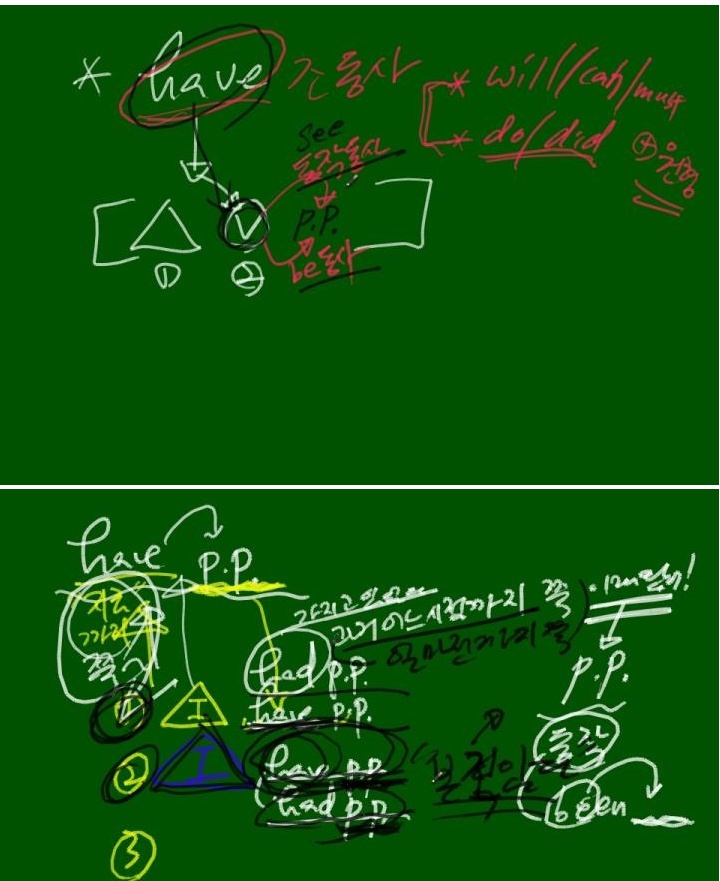 * have 조동사 * will/can/must
* do/did ⊕ 원형
see
동작동사
P.P.
① ② V be동사
have P.P.
지금까지 쭉~
과거 어느시점까지 쭉
had P.P.
얼마전까지 쭉
P.P.
① I have P.P.
② I have P.P.
had P.P.
본 적 있
동작
been
③